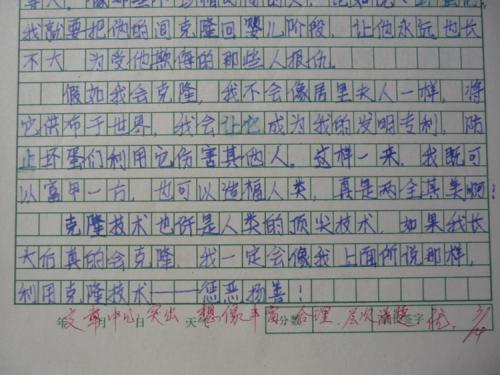 我就要把他的间克隆回婴儿阶段，让他永远也长
不大，为受他欺侮的那些人报仇。
假如我会克隆，我不会像居里夫人一样，将
它供布于世界，我会让它成为我的发明专利，防
止坏蛋们利用它伤害其他人。这样一来，我既可
以富甲一方，也可以造福人类，真是两全其美啊！
克隆技术也许是人类的顶尖技术，如果我长
大后真的会克隆，我一定会像我上面所说那样，
利用克隆技术——惩恶扬善！
文章中心突出 想像丰富 合理，层次清楚 优
年 月 日 天气 分数 签字